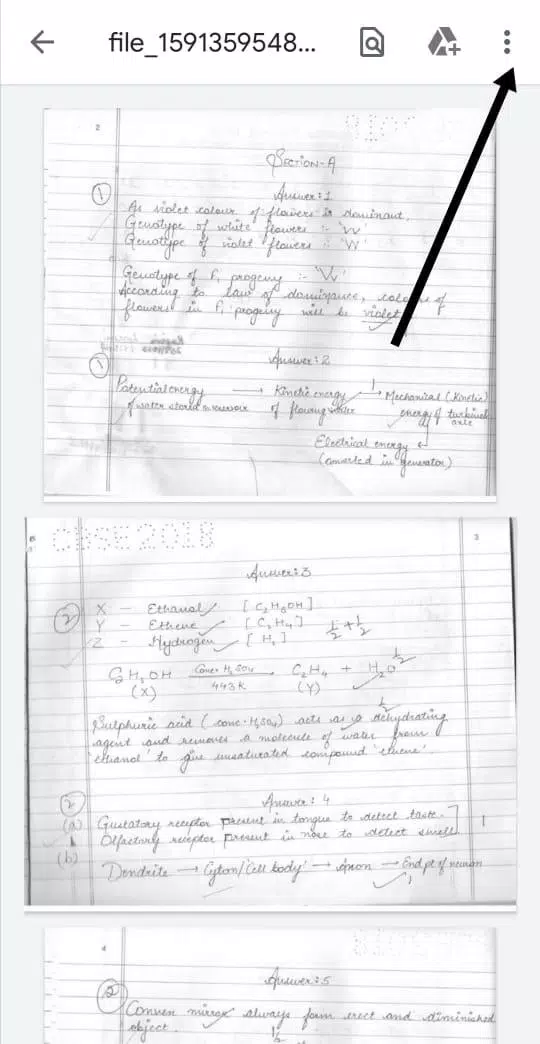 file_1591359548...
2
SECTION-A
1
Answer:1
As violet colour of flowers is dominant,
Genotype of white flowers :- 'w'
Genotype of violet flowers :- 'W'
Genotype of F1 progeny :-
According to law of dominance, colour of
flowers in F1 progeny will be violet
1
Answer:2
Potential energy → Kinetic energy → Mechanical (Kinetic)
of water stored in reservoir of flowing water energy of turbine
axle
Electrical energy
(converted in generator)
CBSE 2018
3
Answer:3
2
X - Ethanol [C2H5OH]
Y - Ethene [C2H4] 1/2+1/2
Z - Hydrogen [H2]
C2H5OH Conc. H2SO4 C2H4 + H2O 1/2
(X) 443K (Y)
1/2
Sulphuric acid (conc. H2SO4) acts as a dehydrating
agent and removes a molecule of water from
'ethanol' to give unsaturated compound 'ethene'.
2
Answer: 4
(a) Gustatory receptor present in tongue to detect taste. 1
Olfactory receptor present in nose to detect smell
(b)
Dendrite → Cyton/'Cell body' → Axon → End pt of neuron
1
4
Answer:5
2
Convex mirror always form erect and diminished
object.
1/2